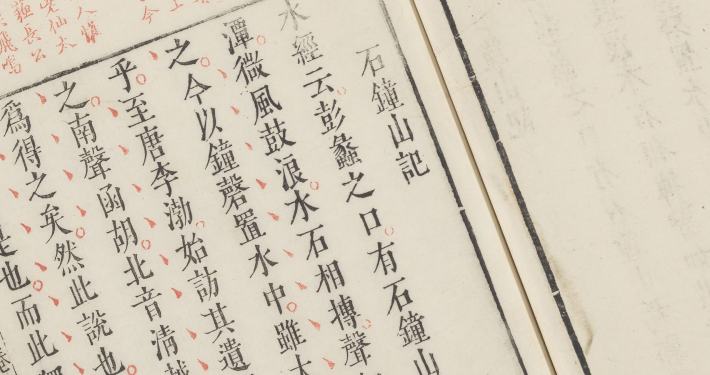 石鐘山記
水經云彭蠡之口有石鐘山
潭微風鼓浪水石相摶聲
之今以鐘磬置水中雖大
乎至唐李渤始訪其遺
之南聲函胡北音清越
為得之矣然此說也
是也而此